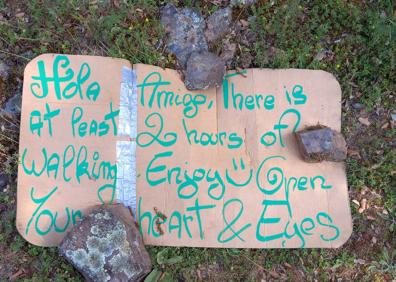 Hola Amigo, There is
At least 2 hours of
Walking. Enjoy Open
Your heart & Eyes